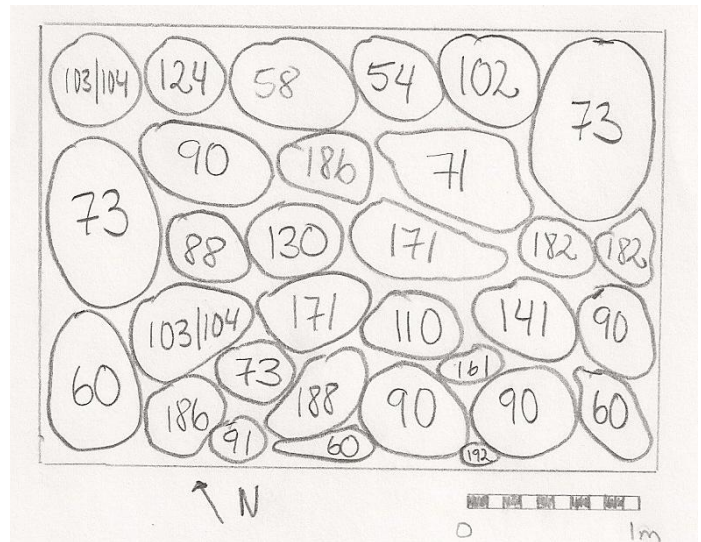 103/104 124 58 54 102 73
90 186 71
73
88 130 171 182 182
103/104 171 110 141 90
60 73 161
186 188 90 90 60
91 60 192
N
0 1m